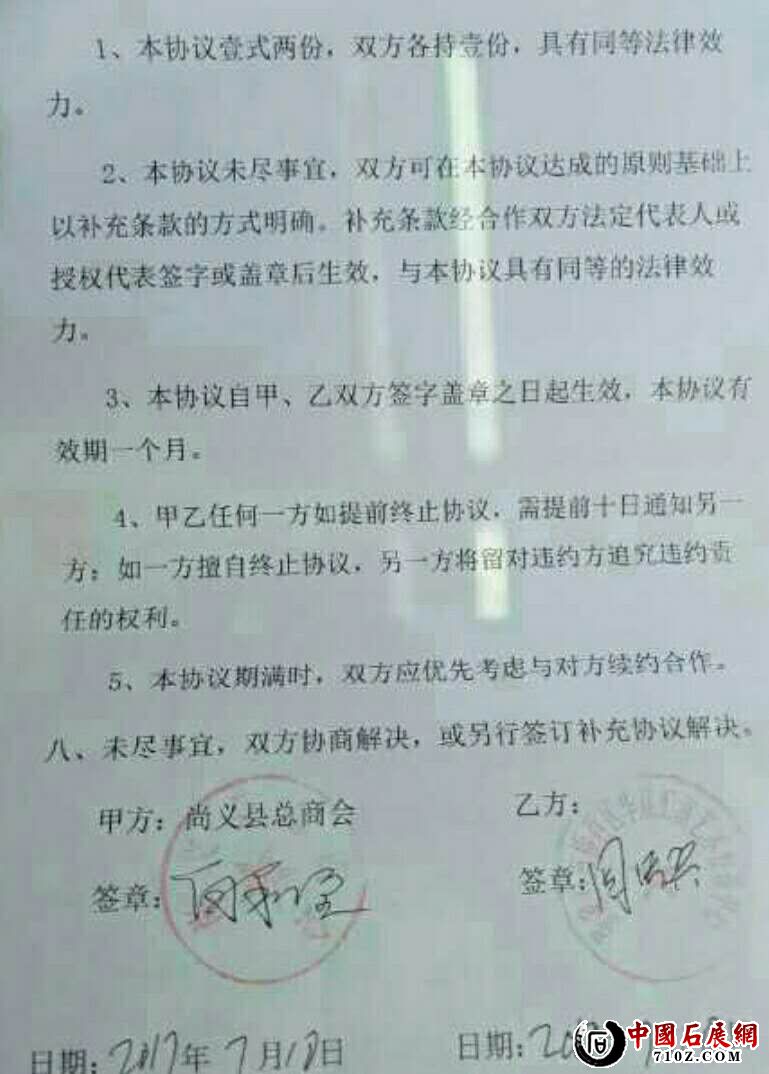 1、本协议壹式两份，双方各持壹份，具有同等法律效
力。
2、本协议未尽事宜，双方可在本协议达成的原则基础上
以补充条款的方式明确。补充条款经合作双方法定代表人或
授权代表签字或盖章后生效，与本协议具有同等的法律效
力。
3、本协议自甲、乙双方签字盖章之日起生效，本协议有
效期一个月。
4、甲乙任何一方如提前终止协议，需提前十日通知另一
方；如一方擅自终止协议，另一方将留对违约方追究违约责
任的权利。
5、本协议期满时，双方应优先考虑与对方续约合作。
八、未尽事宜，双方协商解决，或另行签订补充协议解决。
甲方：尚义县总商会
乙方：
签章：
签章：
日期：2017年7月18日
日期：
中國石展網
7102.COM